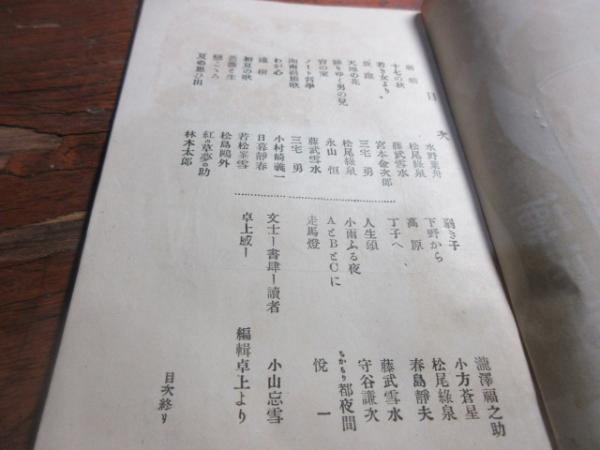 目次
水野葉舟
十七の秋 松尾綠泉
若き女より。 藤武雪水
宮本金次郎
天地の花 三宅勇
りゆく男の兒 松尾綠泉
宵の室 永山恒
ノート哲學 三宅勇
藤武雪水
わが心 小村崎義一
日暮靜春
初夏の歌 若松峯雪
松島鷗外
紅の草夢の助
夏の思ひ出 林木太郎
弱き子 瀧澤福之助
下野から 小方蒼星
高原 松尾綠泉
丁子へ 春島靜夫
人生頌 藤武雪水
小雨ふる夜 守谷謙次
AとBとCに ちかもり都夜間
走馬燈 悅一
文士ー書肆ー讀者 小山忘雪
卓上感ー 編輯卓上より
目次終り